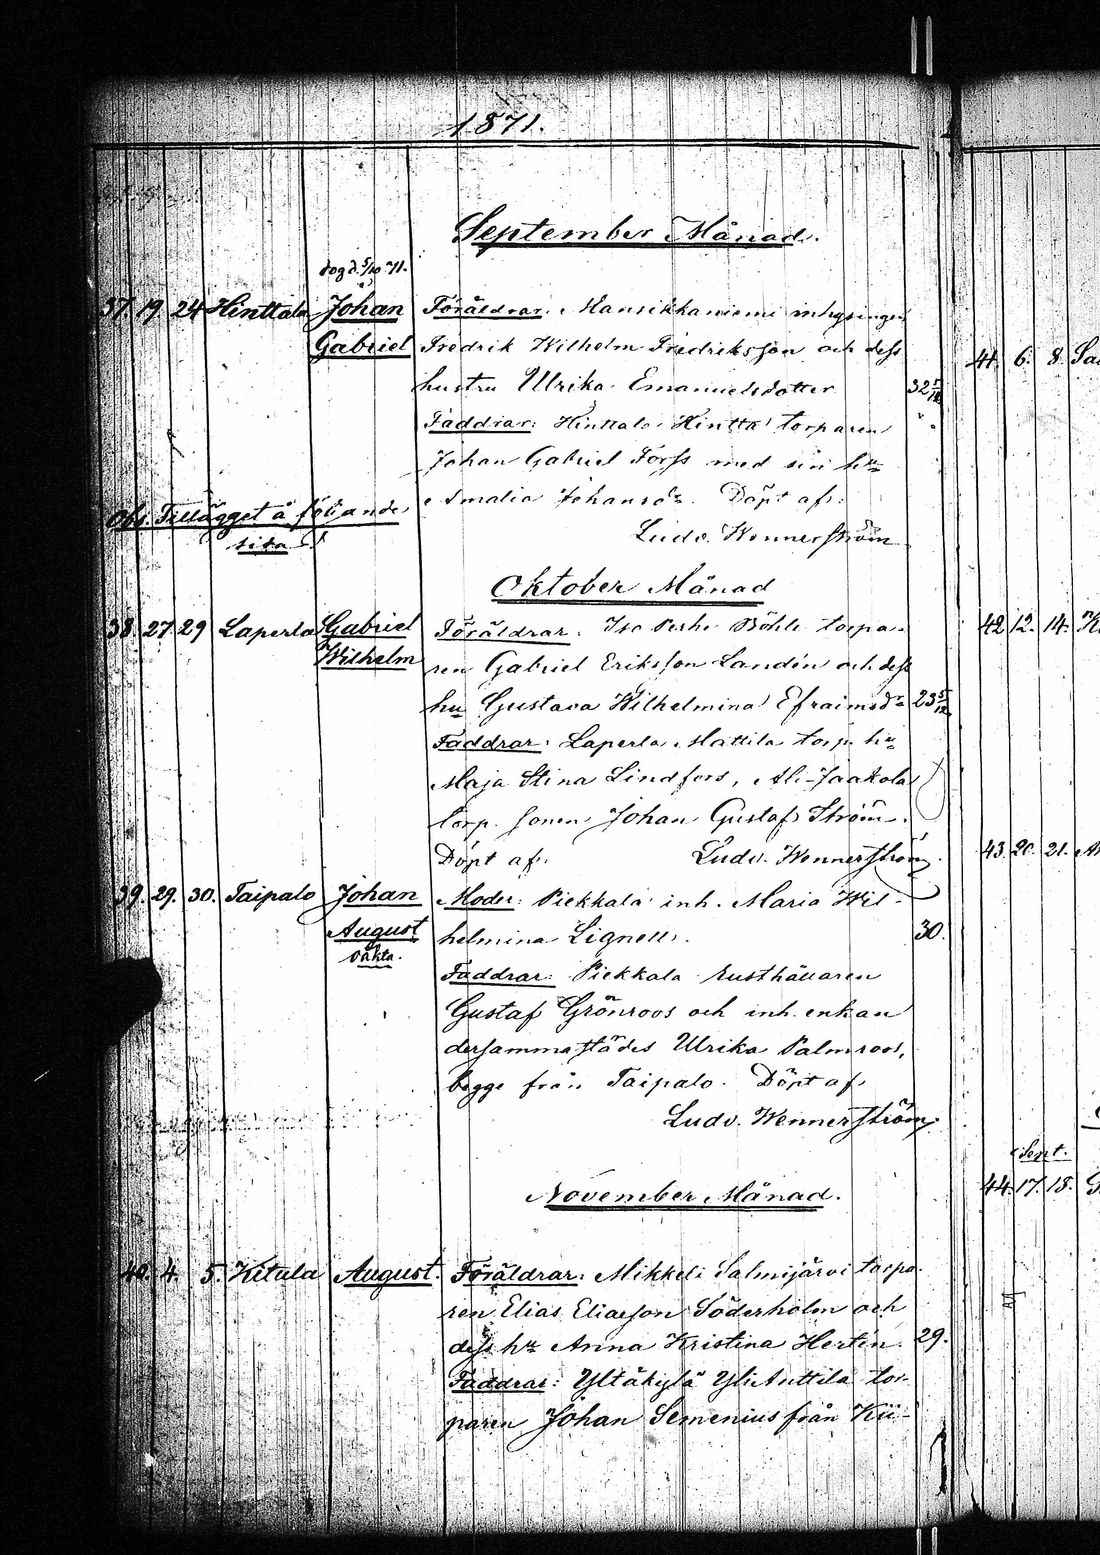 1871.
September Månad.
dog d. 5/10 71.
37. 19. 24 Hinttala Johan Gabriel
Föräldrar: Mansikkaniemi inhysingen
Fredrik Wilhelm Fredriksson och dess
hustru Ulrika Emanuelsdotter 32
Faddrar: Hinttala Hintta torparen
Johan Gabriel Forss med sin hu
Amalia Johansdr. Döpt af:
Ludv. Wennerström
Obs. Tillägget å följande
sida!
Oktober Månad
38. 27. 29 Laperla Gabriel Wilhelm
Föräldrar: Iso Perhe Böhle torpa-
ren Gabriel Eriksson Landén och dess
hu Gustava Wilhelmina Efraimsdr 23 5/12
Faddrar: Laperla Mattila torp. hu
Maja Stina Lindfors, Ali-Jaakola
torp. sonen Johan Gustaf Ström.
Döpt af. Ludv. Wennerström.
39. 29. 30. Taipalo Johan August oäkta.
Moder: Piekkala inh. Maria Wil-
helmina Lignell. 30.
Faddrar: Piekkala rusthållaren
Gustaf Grönroos och inh. enkan
dersammastädes Ulrika Palmroos,
begge från Taipalo. Döpt af
Ludv. Wennerström.
November Månad.
40. 4. 5. Kitula August.
Föräldrar: Mikkeli Salmijärvi torpa-
ren Elias Eliasson Söderholm och
dess hu Anna Kristina Hertin. 29.
Faddrar: Yltäkylä Yli Anttila tor-
paren Johan Semenius från Kii-
41. 6. 8.
42 12. 14.
43. 20. 21.
Sept.
44. 17. 18.